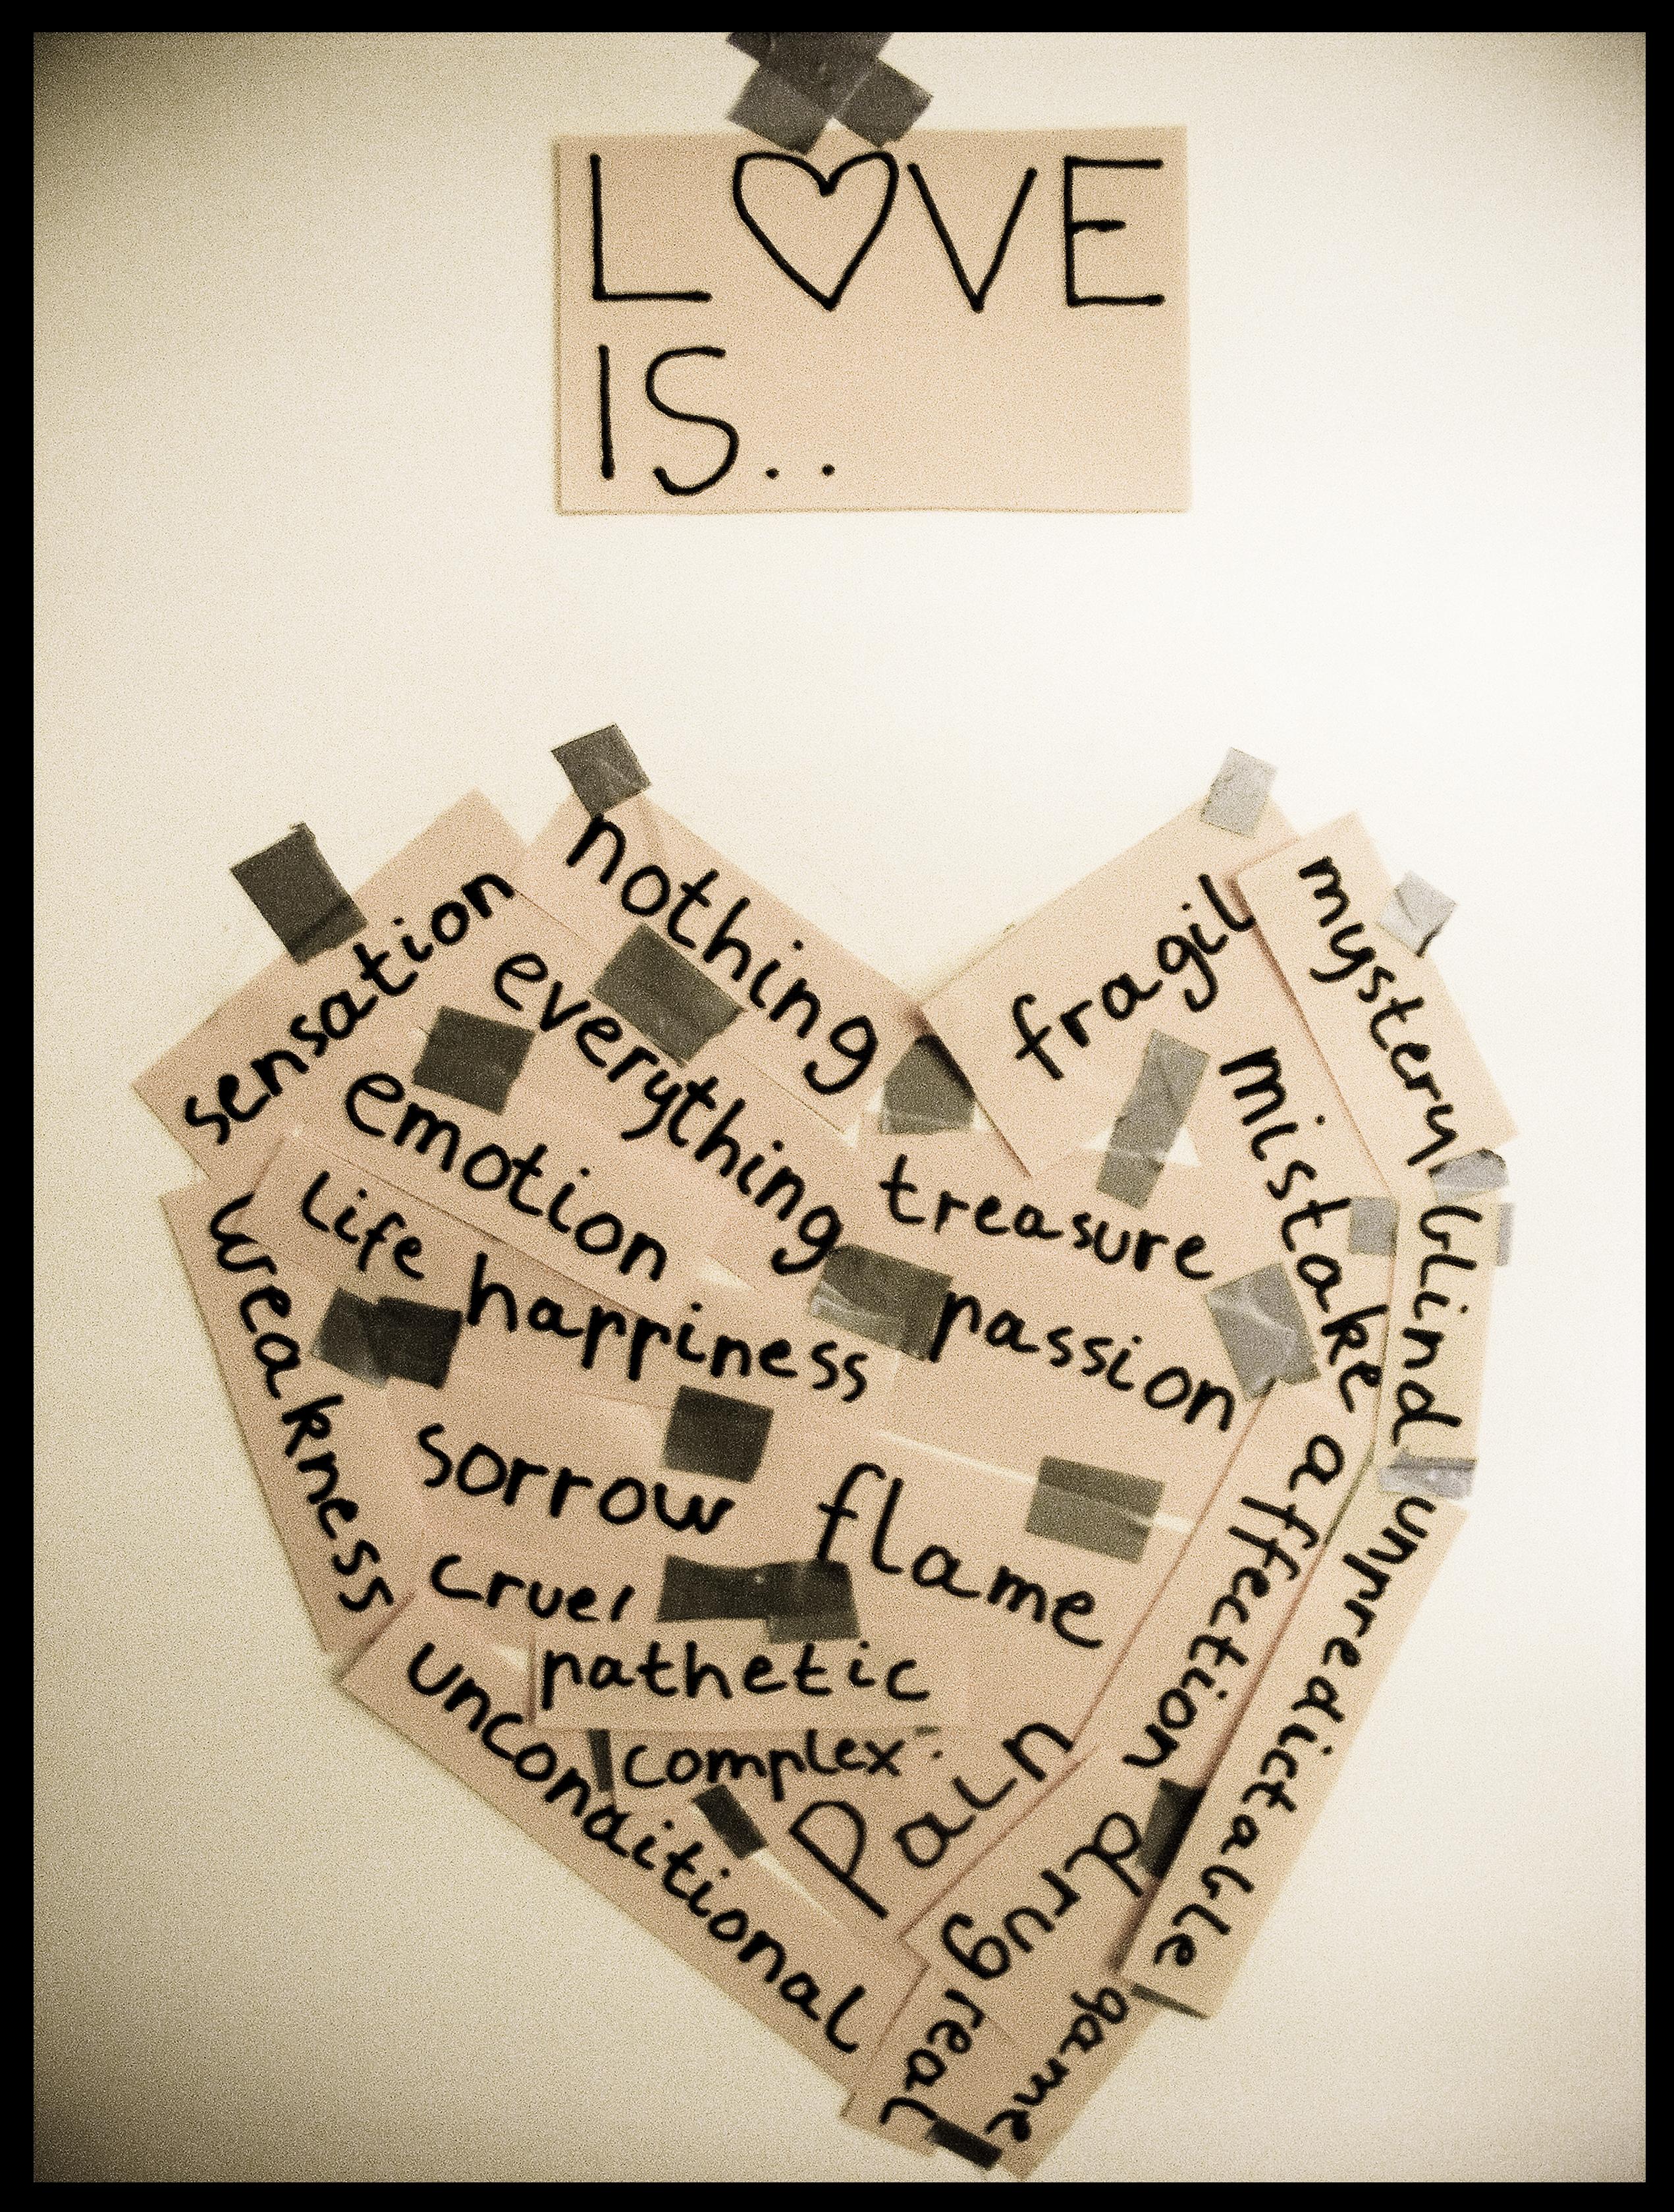 L♡VE
IS..
nothing
sensation
everything
emotion
fragil
mystery
mistake
treasure
life
happiness
passion
blind
weakness
sorrow
flame
affection
unpredictable
cruel
pathetic
complex
pain
unconditional
drug
real
game